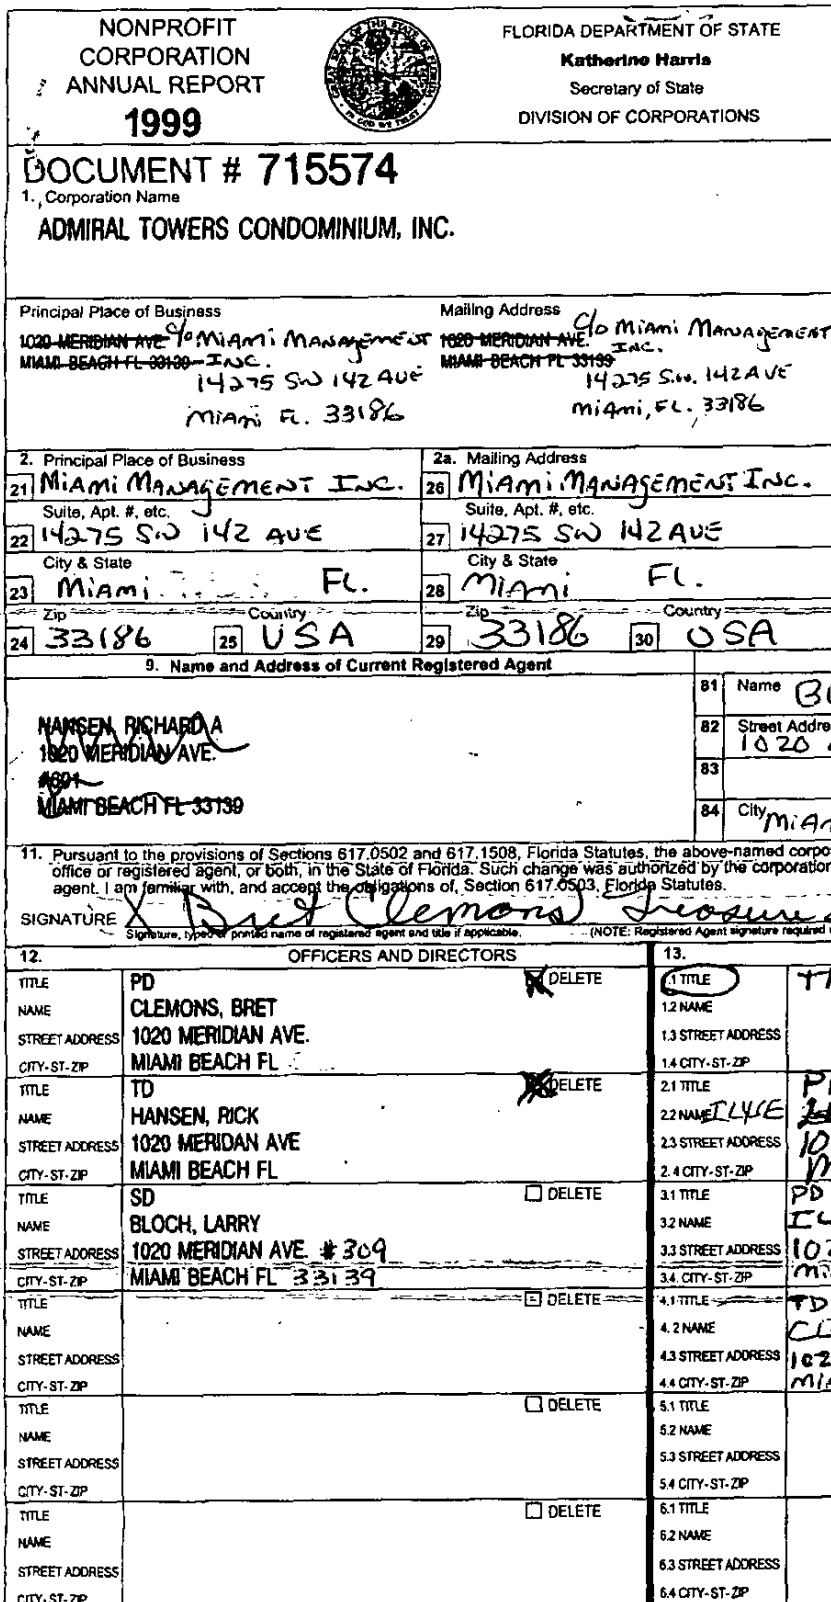 NONPROFIT
CORPORATION
ANNUAL REPORT
1999
FLORIDA DEPARTMENT OF STATE
Katherine Harris
Secretary of State
DIVISION OF CORPORATIONS
DOCUMENT # 715574
1. Corporation Name
ADMIRAL TOWERS CONDOMINIUM, INC.
Principal Place of Business
1020 MERIDIAN AVE c/o Miami Management
MIAMI BEACH FL 33139 INC.
14275 SW 142 AVE
Miami FL. 33186
Mailing Address
1020 MERIDIAN AVE. c/o Miami Management
MIAMI BEACH FL 33139 INC.
14275 S.W. 142 AVE
Miami, FL. 33186
2. Principal Place of Business
21 Miami Management Inc.
Suite, Apt. #, etc.
22 14275 SW 142 AVE
City & State
23 Miami FL.
Zip Country
24 33186 25 USA
2a. Mailing Address
26 Miami Management Inc.
Suite, Apt. #, etc.
27 14275 SW 142 AVE
City & State
28 Miami FL.
Zip Country
29 33186 30 USA
9. Name and Address of Current Registered Agent
HANSEN, RICHARD A
1020 MERIDIAN AVE.
#601
MIAMI BEACH FL 33139
81 Name
82 Street Addre
1020
83
84 City Miam
11. Pursuant to the provisions of Sections 617.0502 and 617.1508, Florida Statutes, the above-named corpo
office or registered agent, or both, in the State of Florida. Such change was authorized by the corporation
agent. I am familiar with, and accept the obligations of, Section 617.0503, Florida Statutes.
SIGNATURE X Bret Clemons Treasure
Signature, typed or printed name of registered agent and title if applicable. (NOTE: Registered Agent signature required
12. OFFICERS AND DIRECTORS
TITLE PD DELETE
NAME CLEMONS, BRET
STREET ADDRESS 1020 MERIDIAN AVE.
CITY-ST-ZIP MIAMI BEACH FL
TITLE TD DELETE
NAME HANSEN, RICK
STREET ADDRESS 1020 MERIDAN AVE
CITY-ST-ZIP MIAMI BEACH FL
TITLE SD DELETE
NAME BLOCH, LARRY
STREET ADDRESS 1020 MERIDIAN AVE. #309
CITY-ST-ZIP MIAMI BEACH FL 33139
TITLE DELETE
NAME
STREET ADDRESS
CITY-ST-ZIP
TITLE DELETE
NAME
STREET ADDRESS
CITY-ST-ZIP
TITLE DELETE
NAME
STREET ADDRESS
CITY-ST-ZIP
13.
1.1 TITLE
1.2 NAME
1.3 STREET ADDRESS
1.4 CITY-ST-ZIP
2.1 TITLE
2.2 NAME ILYSE
2.3 STREET ADDRESS 10
2.4 CITY-ST-ZIP
3.1 TITLE PD
3.2 NAME
3.3 STREET ADDRESS 102
3.4. CITY-ST-ZIP Mi
4.1 TITLE TD
4.2 NAME CL
4.3 STREET ADDRESS 102
4.4 CITY-ST-ZIP MIA
5.1 TITLE
5.2 NAME
5.3 STREET ADDRESS
5.4 CITY-ST-ZIP
6.1 TITLE
6.2 NAME
6.3 STREET ADDRESS
6.4 CITY-ST-ZIP